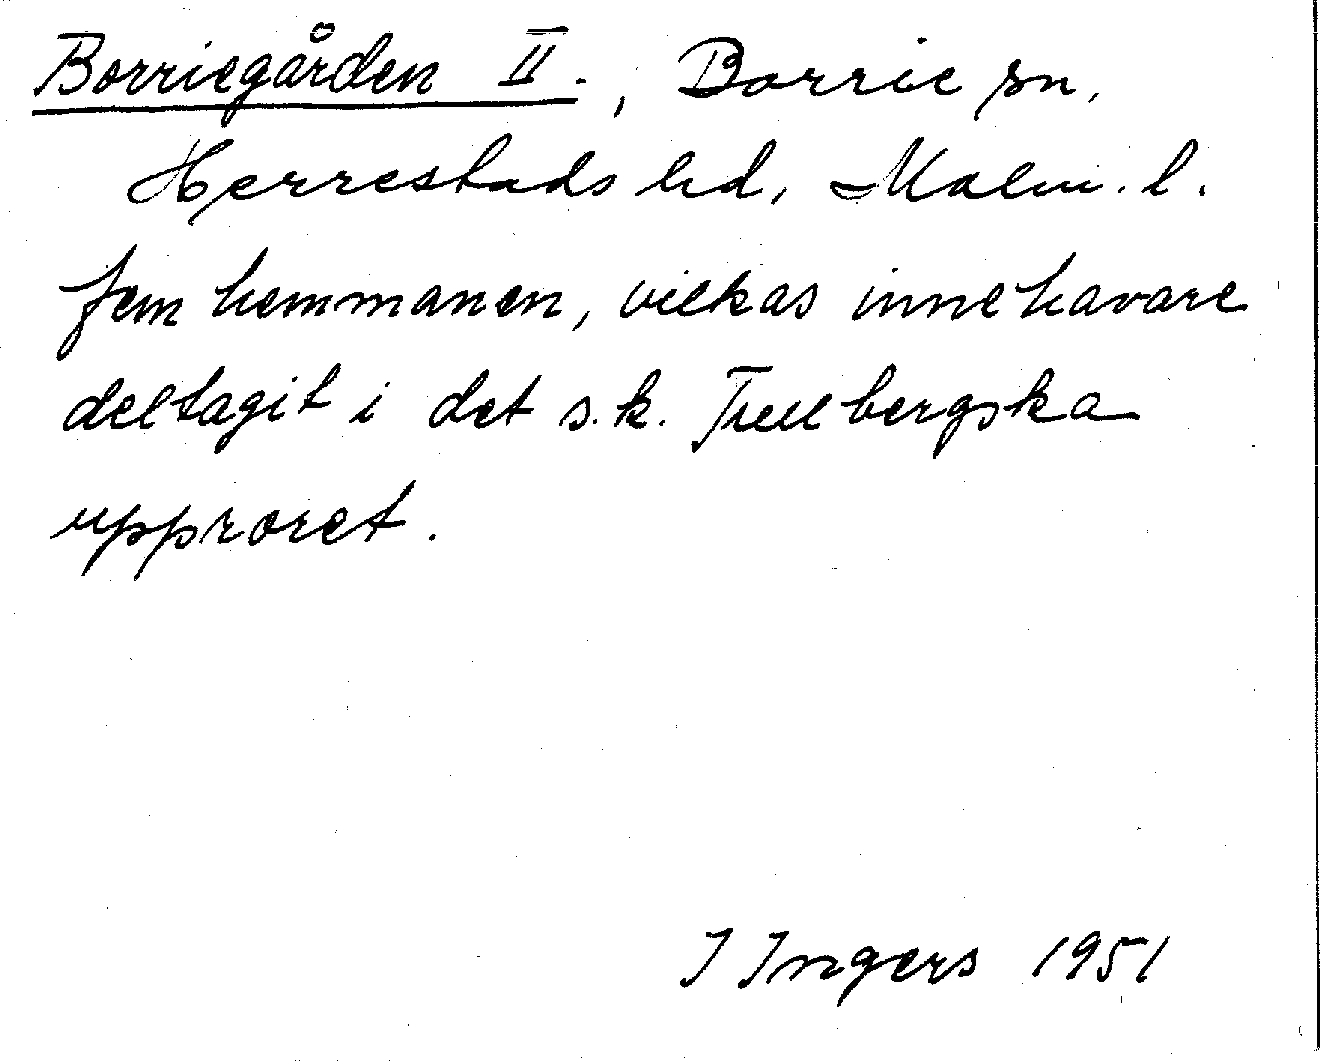 Borriegården II., Borrie sn,
Herrestads hd, Malm. l.
fem hemmanen, vilkas innehavare
deltagit i det s.k. Trellbergska
upproret.
I Ingers 1951